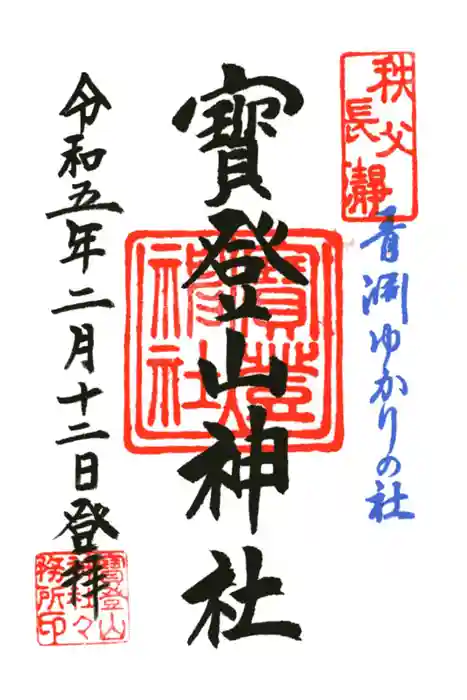 秩父
長瀞
青渕ゆかりの社
寳登山神社
寳登山
神社
令和五年二月十二日登拝
寳登山
神社々
務所印